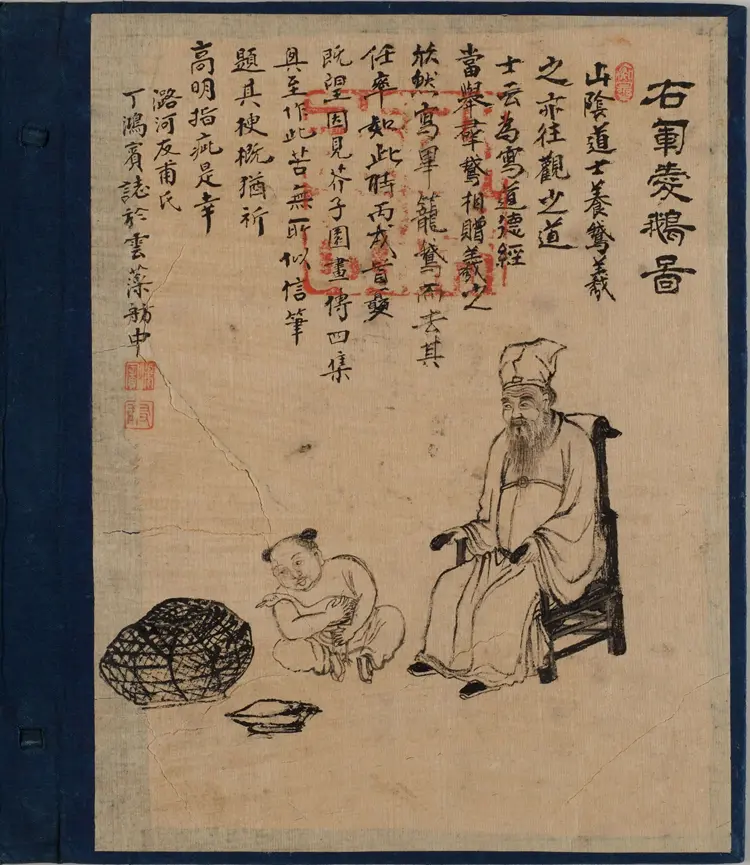 右軍愛鵝圖
山陰道士養鵞羲
之亦往觀之道
士云為寫道德經
當舉羣鵞相贈羲之
欣然寫畢籠鵞而去其
任率如此時丙戌首夏
既望因見芥子園畫傳四集
具至作此苦無所似信筆
題其梗概猶祈
高明指疵是幸
潞河友甫氏
丁鴻賓誌於雲藻舫中